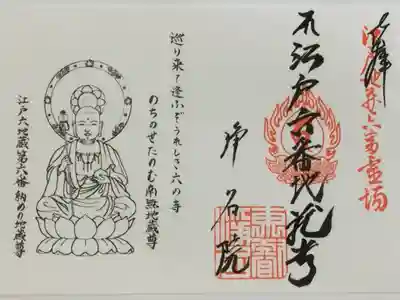 奉拝
江戸六番地蔵尊
浄名院
巡り来て逢ふぞうれしき六の寺
のちのせたのむ南無地蔵尊
江戸六地蔵第六番 納めの地蔵尊